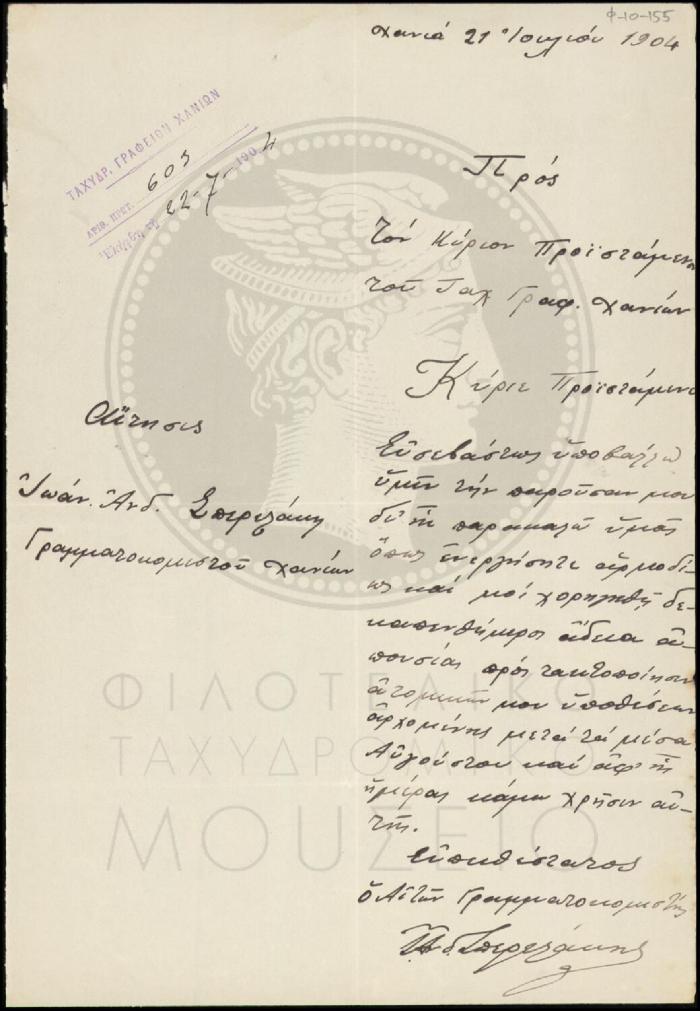 Φ-10-155
Χανιά 21 Ἰουλίου 1904
ΤΑΧΥΔΡ. ΓΡΑΦΕΙΟΝ ΧΑΝΙΩΝ
ΑΡΙΘ. ΠΡΩΤ. 603
Ἐλήφθη τῇ 22-7-1904
Πρός
Τόν Κύριον Προϊστάμενον
τοῦ Ταχ Γραφ. Χανίων
Κύριε Προϊστάμενε
Αἴτησις
Ἰωάν. Ἀνδ.
Γραμματοκομιστοῦ Χανίων
Εὐσεβάστως ὑποβάλλω
ὑμῖν τήν παροῦσαν μου
δι' ἧς παρακαλῶ ὑμᾶς
ὅπως ἐνεργήσητε ἁρμοδί-
ως καί μοί χορηγηθῇ δε-
καπενθήμερος ἄδεια ἀ-
πουσίας πρός τακτοποίησιν
ἀτομικῶν μου ὑποθέσεων
ἀρχομένης μετά τά μέσα
Αὐγούστου καί ἀφ' ἧς
ἡμέρας κάμω χρῆσιν αὐ-
τῆς.
Εὐπειθέστατος
ὁ Αἰτῶν Γραμματοκομιστής
ΦΙΛΟΤΕΛΙΚΟ
ΤΑΧΥΔΡΟΜΙΚΟ
ΜΟΥΣΕΙΟ